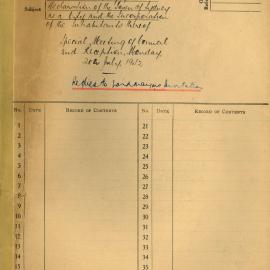 Subject
Declaration of the Town of Sydney
as a City and the Incorporation
of the Inhabitants thereof
Special Meeting of Council
and Reception, Monday
20th July 1942
Replies to Lord Mayor's Invitation
No. DATE RECORD OF CONTENTS No. DATE RECORD OF CONTENTS
1 21
2 22
3 23
4 24
5 25
6 26
7 27
8 28
9 29
10 30
11 31
12 32
13 33
14 34
15 35